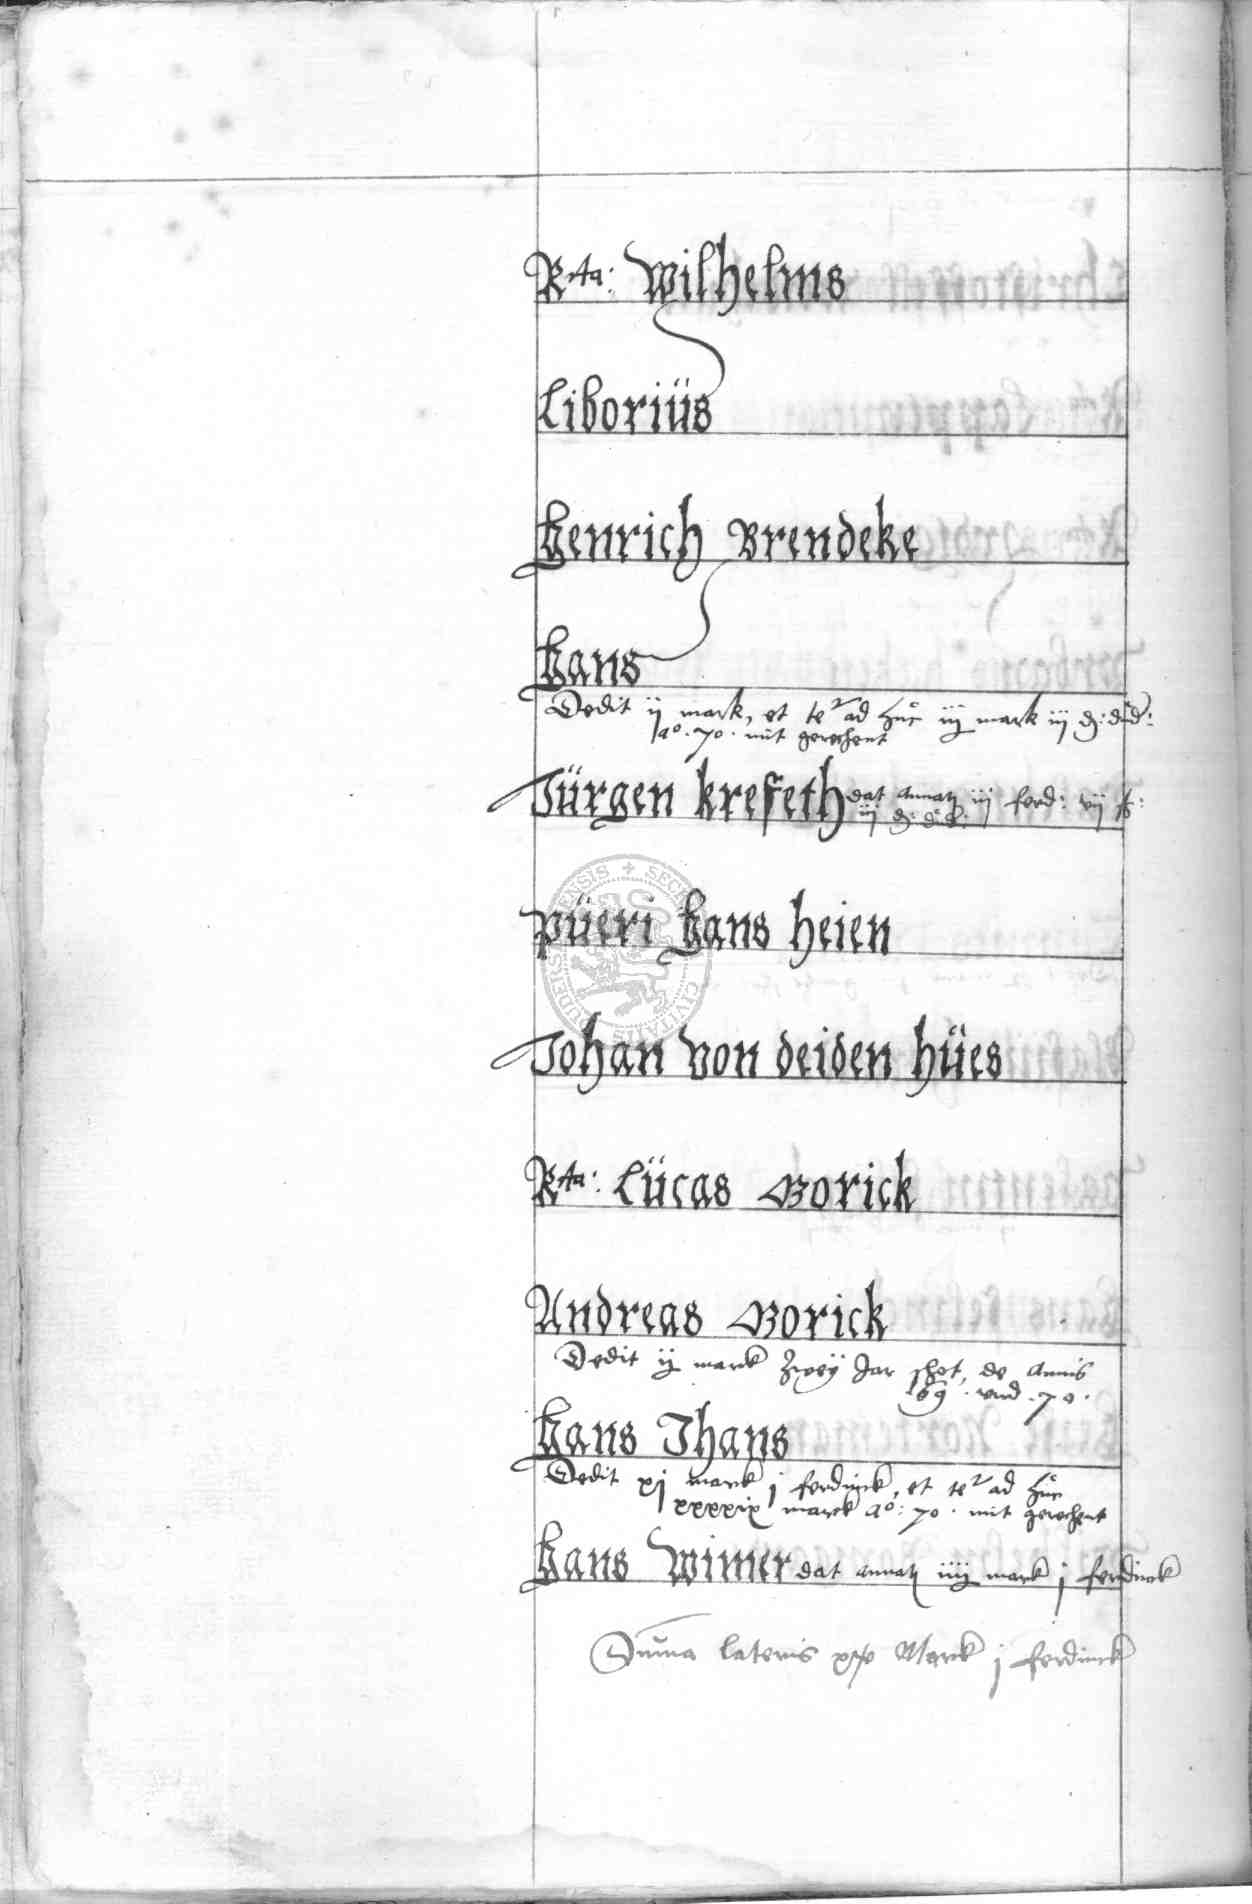 Rta: Wilhelms
Liboriüs
Henrich Brendeke
Hans
Dedit ij mark, et te ad huc iij mark iij g: d d:
ao. 70. mit gerechent
Jürgen krefeth dat annatz iij ferd: vij
iij g: d d:
püeri Hans heien
Johan von deiden hües
Rta: Lücas Borick
Andreas Borick
Dedit ij marck zwey Jar schot, de annis
69. vnd. 70.
Hans Thans
Dedit xj marck j ferdinck, et te ad huc
xxxxix marck ao: 70. mit gerechent
Hans Wimer dat annatz iiij mark j ferdinck
Summa lateris Marck j ferdinck
SECRE CIVITATIS